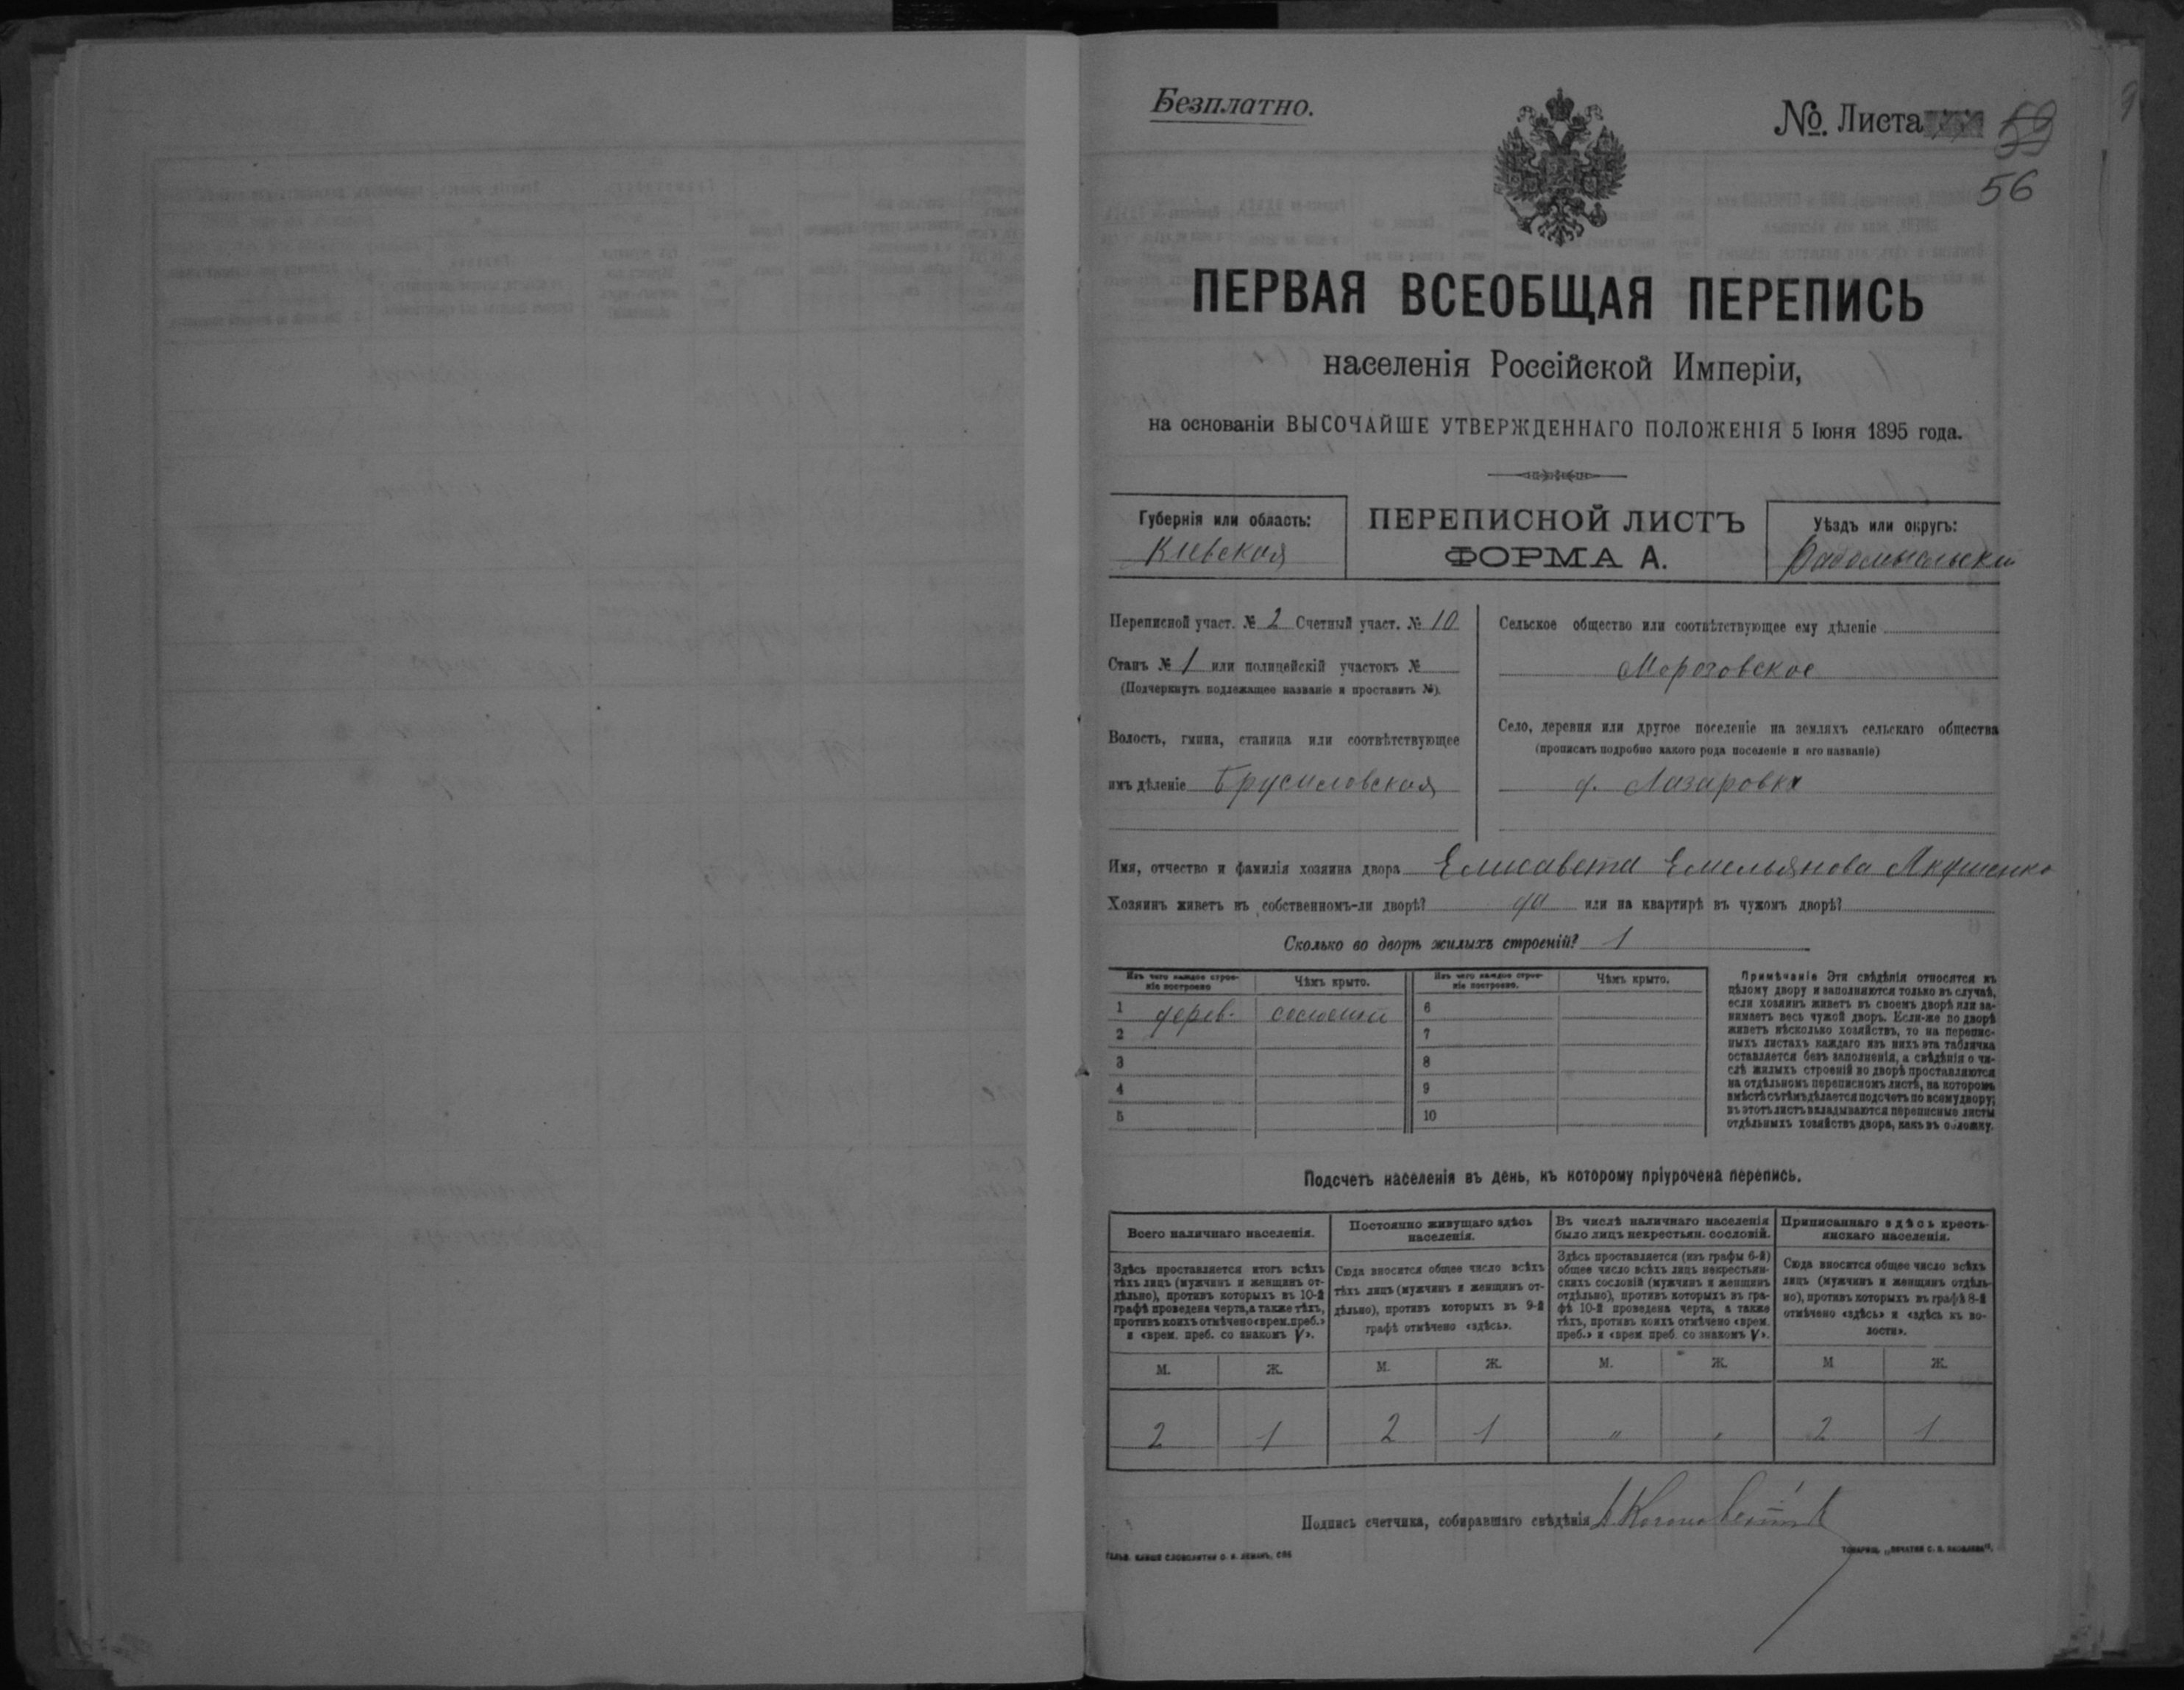 Безплатно.
№. Листа 59
56
ПЕРВАЯ ВСЕОБЩАЯ ПЕРЕПИСЬ
населенія Россійской Имперіи,
на основаніи ВЫСОЧАЙШЕ УТВЕРЖДЕННАГО ПОЛОЖЕНІЯ 5 Іюня 1895 года.
Губернія или область:
Кіевская
ПЕРЕПИСНОЙ ЛИСТЪ
ФОРМА А.
Уѣздъ или округъ:
Радомысльскій
Переписной участ. № 2 Счетный участ. № 10
Станъ № 1 или полицейскій участокъ №
(Подчеркнуть подлежащее названіе и проставить №).
Волость, гмина, станица или соотвѣтствующее
имъ дѣленіе Брусиловская
Сельское общество или соотвѣтствующее ему дѣленіе
Морозовское
Село, деревня или другое поселеніе на земляхъ сельскаго общества
(прописать подробно какого рода поселеніе и его названіе)
д. Лазаровка
Имя, отчество и фамилія хозяина двора Елисавета Емельянова Якушенко
Хозяинъ живетъ въ собственномъ-ли дворѣ? да или на квартирѣ въ чужомъ дворѣ?
Сколько во дворѣ жилыхъ строеній? 1
Изъ чего каждое строе-
ніе построено
Чѣмъ крыто.
Изъ чего каждое строе-
ніе построено.
Чѣмъ крыто.
1 дерев. соломой 6
2 7
3 8
4 9
5 10
Примѣчаніе Эти свѣдѣнія относятся къ
цѣлому двору и заполняются только въ случаѣ,
если хозяинъ живетъ въ своемъ дворѣ или за-
нимаетъ весь чужой дворъ. Если-же во дворѣ
живетъ нѣсколько хозяйствъ, то на перепис-
ныхъ листахъ каждаго изъ нихъ эта табличка
оставляется безъ заполненія, а свѣдѣнія о чи-
слѣ жилыхъ строеній во дворѣ проставляются
на отдѣльномъ переписномъ листѣ, на которомъ
вмѣстѣ съ тѣмъ дѣлается подсчетъ по всему двору;
въ этотъ листъ вкладываются переписные листы
отдѣльныхъ хозяйствъ двора, какъ въ обложку.
Подсчетъ населенія въ день, къ которому пріурочена перепись.
Всего наличнаго населенія.
Здѣсь проставляется итогъ всѣхъ
тѣхъ лицъ (мужчинъ и женщинъ от-
дѣльно), противъ которыхъ въ 10-й
графѣ проведена черта, а также тѣхъ,
противъ коихъ отмѣчено «врем. преб.»
и «врем. преб. со знакомъ V».
Постоянно живущаго здѣсь
населенія.
Сюда вносится общее число всѣхъ
тѣхъ лицъ (мужчинъ и женщинъ от-
дѣльно), противъ которыхъ въ 9-й
графѣ отмѣчено «здѣсь».
Въ числѣ наличнаго населенія
было лицъ некрестьян. сословій.
Здѣсь проставляется (изъ графы 6-й)
общее число всѣхъ лицъ некрестьян-
скихъ сословій (мужчинъ и женщинъ
отдѣльно), противъ которыхъ въ гра-
фѣ 10-й проведена черта, а также
тѣхъ, противъ коихъ отмѣчено «врем.
преб.» и «врем. преб. со знакомъ V».
Приписаннаго здѣсь кресть-
янскаго населенія.
Сюда вносится общее число всѣхъ
лицъ (мужчинъ и женщинъ отдѣль-
но), противъ которыхъ въ графѣ 8-й
отмѣчено «здѣсь» и «здѣсь къ во-
лости».
М. Ж. М. Ж. М. Ж. М Ж.
2 1 2 1 " " 2 1
Подпись счетчика, собиравшаго свѣдѣнія
ГАЛЬВ. КЛИШЕ СЛОВОЛИТНИ О. И. ЛЕМАНЪ, СПБ
ТОВАРИЩ. „ПЕЧАТНЯ С. П. ЯКОВЛЕВА".